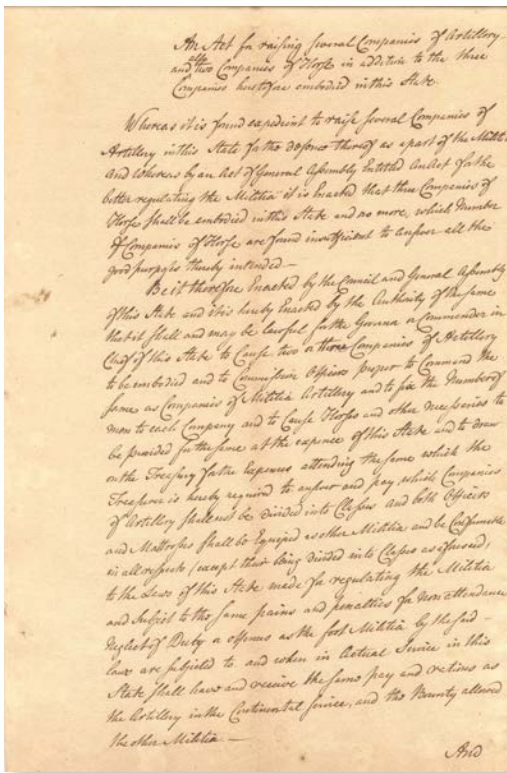 An Act for raising several Companies of Artillery
also
and two Companies of Horse in addition to the three
Companies heretofore embodied in this State.
Whereas it is found expedient to raise several Companies of
Artillery in this State for the defence thereof as a part of the Militia
and whereas by an Act of General Assembly Entitled An Act for the
better regulating the Militia it is Enacted that three Companies of
Horse shall be embodied in this State and no more, which Number
of Companies of Horse are found insufficient to answer all the
good purposes thereby intended —
Be it therefore Enacted by the Council and General Assembly
of this State and it is hereby Enacted by the Authority of the same
that it shall and may be lawful for the Governor or Commander in
Chief of this State to Cause two or three Companies of Artillery
to be embodied and to Commission Officers proper to Command the
same as Companies of Militia Artillery and to fix the Number of
men to each Company and to Cause Horses and other necessaries to
be provided for the same at the expence of this State and to draw
on the Treasury for the Expences attending the same which the
Treasurer is hereby required to answer and pay, which Companies
of Artillery shall not be divided into Classes and both Officers
and Mattrosses shall be Equiped as other Militia and be Conformable
in all respects (except their being divided into Classes as aforesaid,
to the Laws of this State made for regulating the Militia
and Subject to the same pains and penalties for Non attendance
Neglect of Duty or offences as the foot Militia by the said
laws are subjected to and when in Actual Service in this
State shall have and receive the same pay and rations as
the Artillery in the Continental Service, and the Bounty allowed
the other Militia —
And